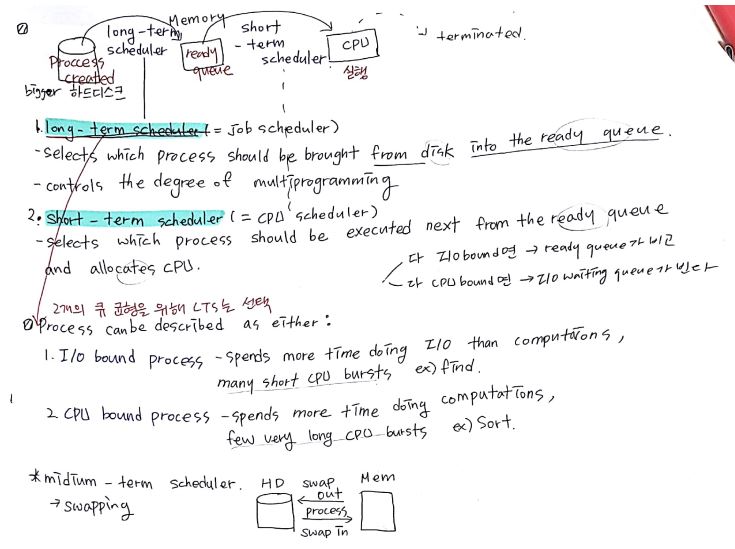 long-term scheduler
Memory
short-term scheduler
CPU
→ terminated.
Proccess created
ready queue
실행
bigger 하드디스크
1. long-term scheduler (= Job scheduler)
-selects which process should be brought from disk into the ready queue.
-controls the degree of multiprogramming
2. short-term scheduler (= CPU scheduler)
-selects which process should be executed next from the ready queue
and allocates CPU.
다 I/O bound면 → ready queue가 비고
다 CPU bound면 → I/O waiting queue가 빈다
2개의 큐 균형을 위해 LTS는 선택
Process can be described as either:
1. I/O bound process -spends more time doing I/O than computations,
many short CPU bursts ex) find.
2 CPU bound process -spends more time doing computations,
few very long CPU bursts ex) Sort.
*midium-term scheduler.
→ swapping
HD swap out Mem
process
swap in